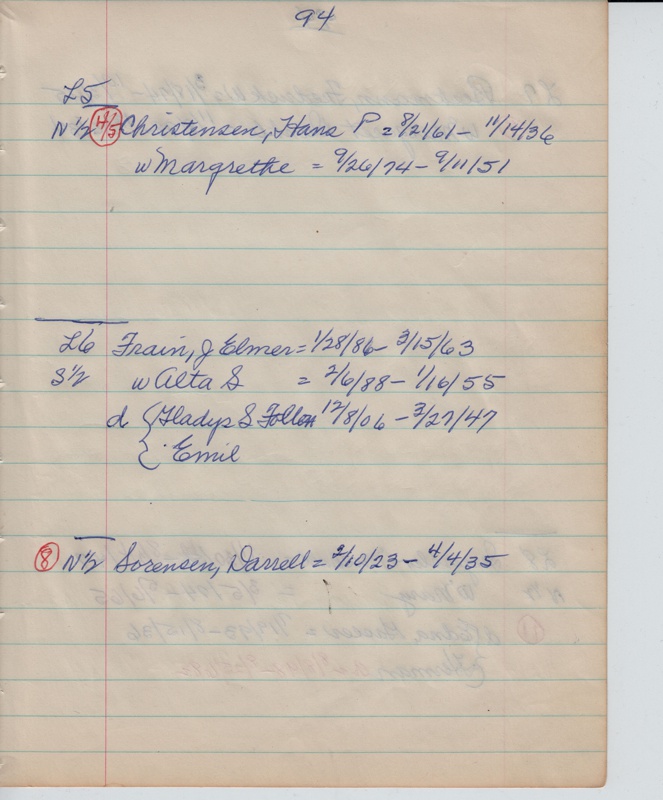 94
L5
N 1/2 4/5 Christensen, Hans P = 8/21/61 - 11/14/36
w Margrethe = 9/26/74 - 9/11/51
L6 Frain, J Elmer = 1/28/86 - 3/15/63
S 1/2 w Alta S = 2/6/88 - 1/16/55
d { Gladys S 12/8/06 - 3/27/47
{ Emil
8 N 1/2 Sorensen, Darrell = 2/10/23 - 4/4/35